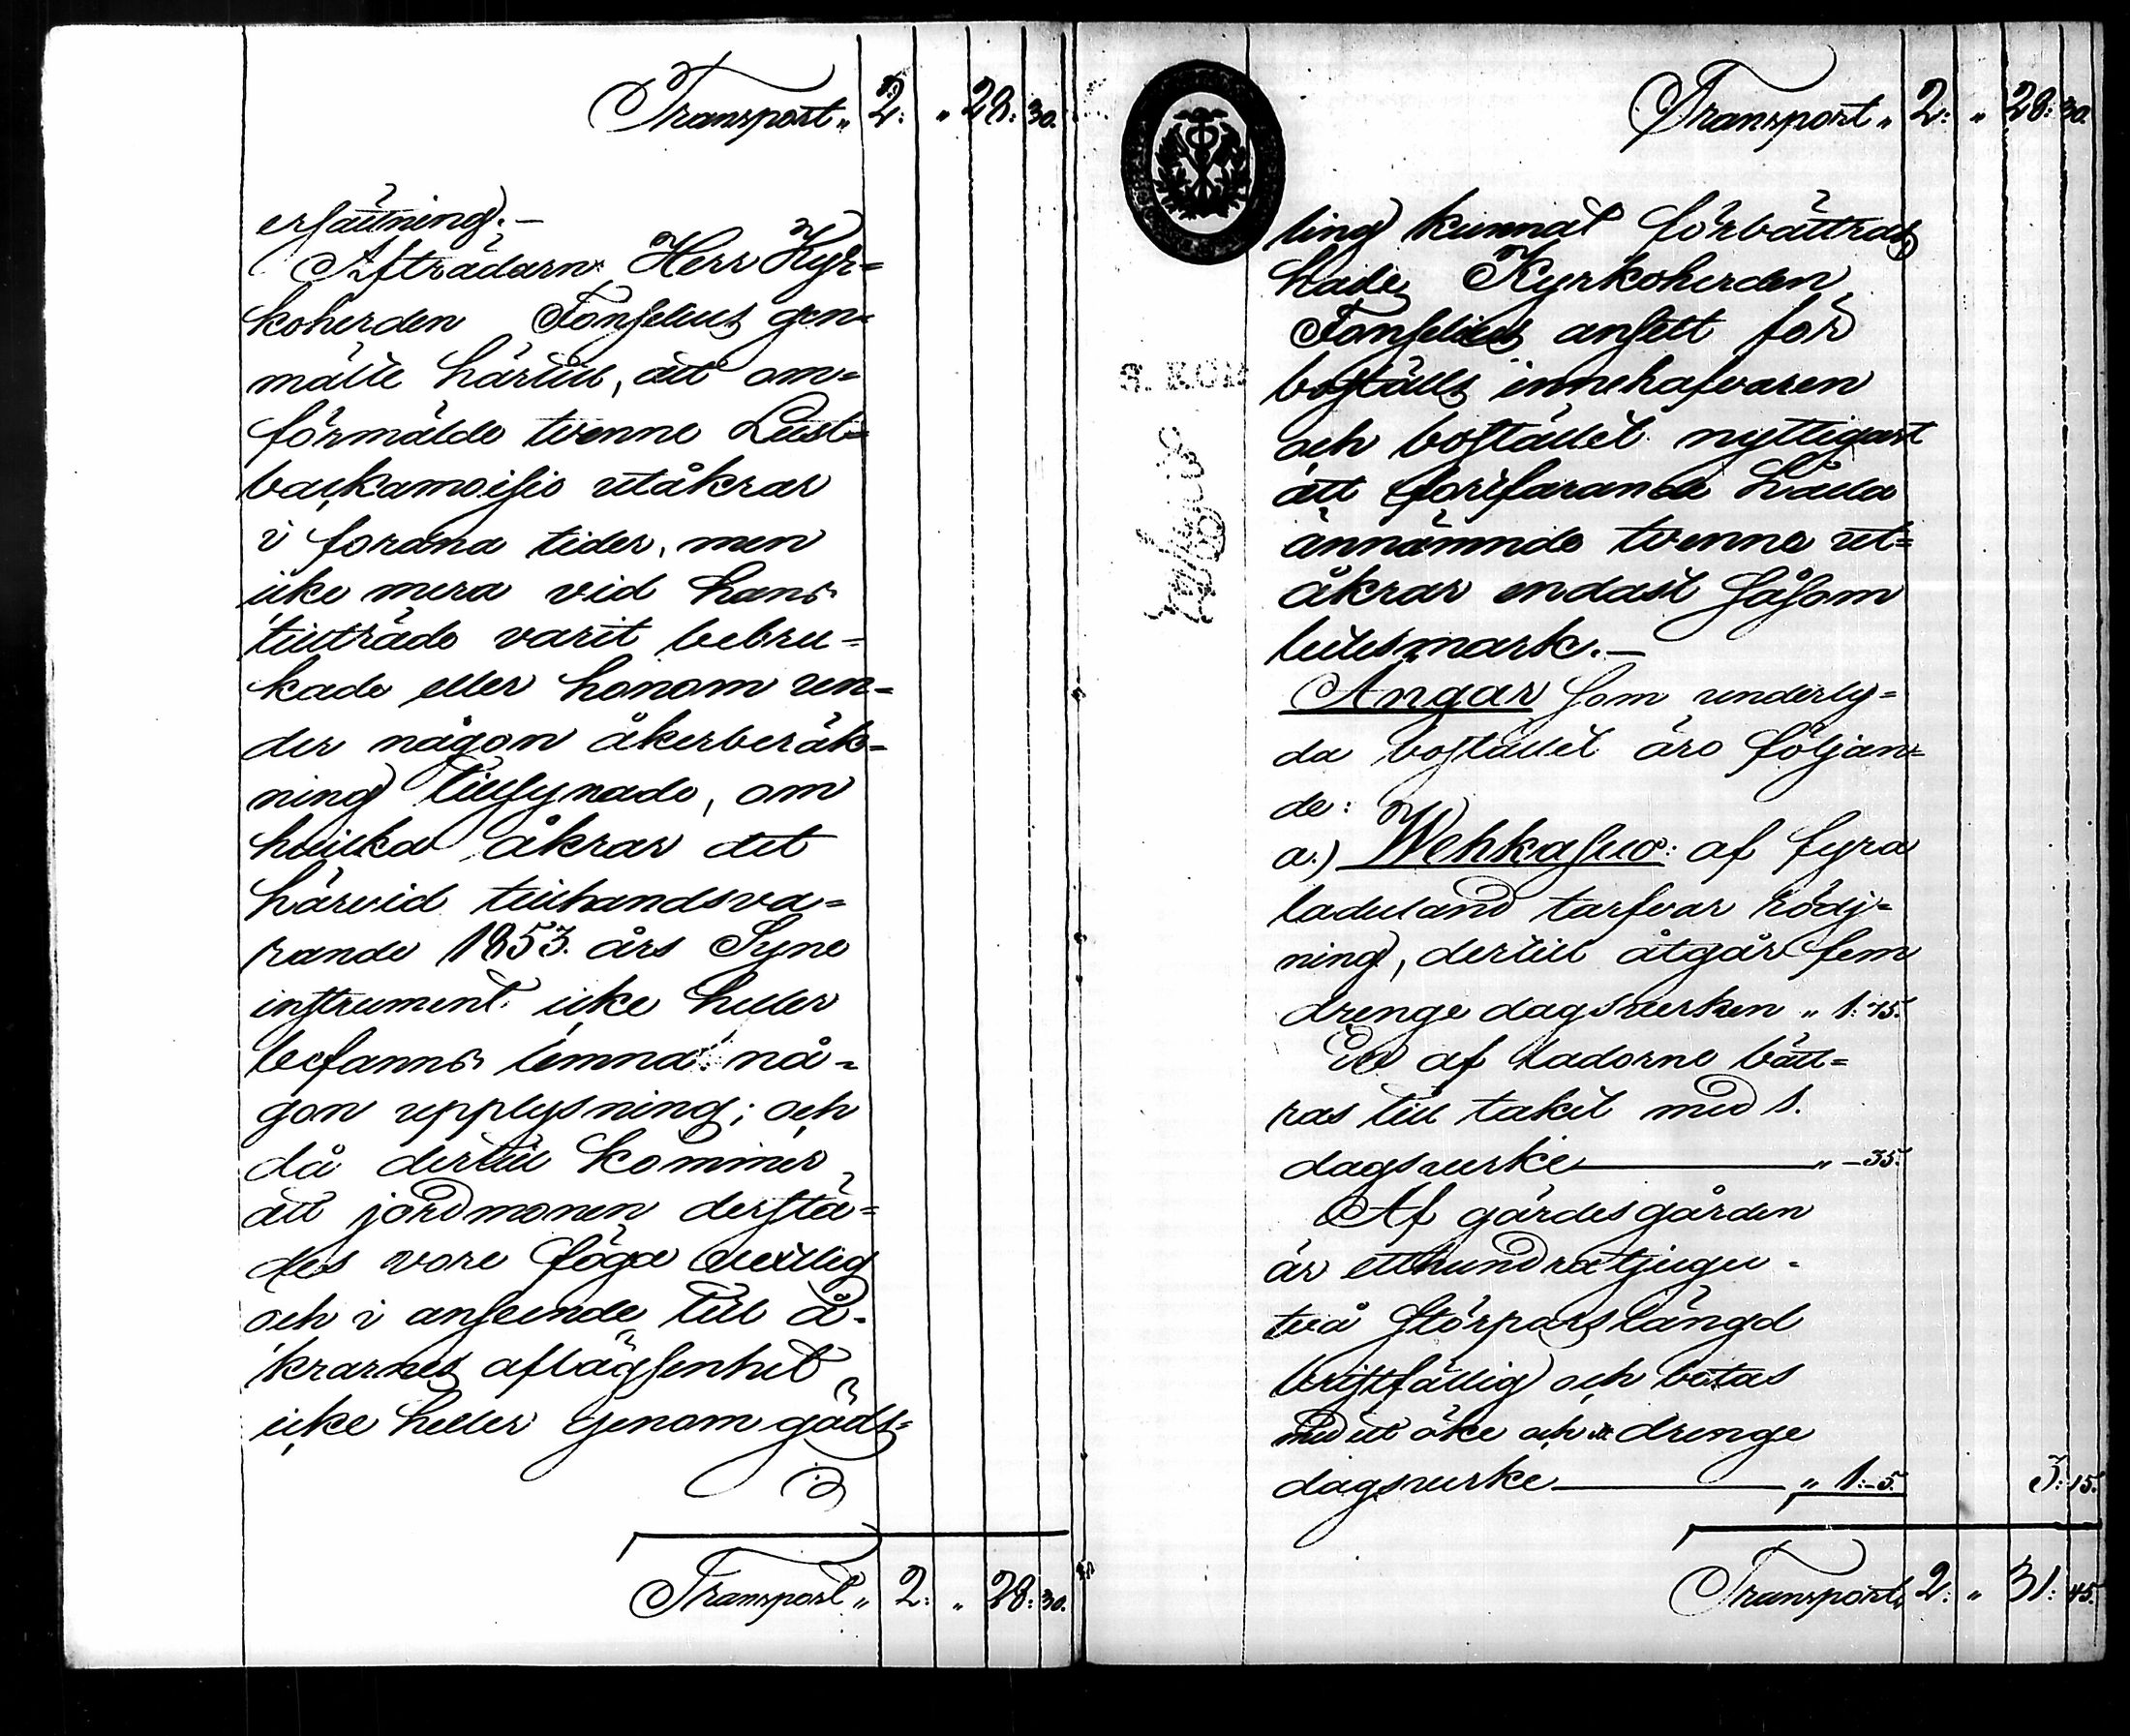 Transport " 2: " 28: 30.
ersättning.—
Afträdarn Herr Kyr=
koherden Fonselius gen=
mälte härtill, att om=
förmälde tvenne Lust=
backamoisio utåkrar
i forana tider, men
icke mera vid hans
tillträde varit bebru=
kade eller honom un=
der någon åkerberäk=
ning tillsynade, om
hvilka åkrar det
härvid tillhandsva=
rande 1853. års Syne
instrument icke heller
befanns lemna nå=
gon upplysning; och
då dertill kommer
att jordmonen derstä=
des vore föga växtlig
och i anseende till å=
krarnes aflägsenhet
icke heller genom göds=
Transport " 2: " 28: 30.
Transport " 2: " 28: 30.
ling kunnat förbättras,
hade Kyrkoherden
Fonselius ansett för
boställs innehafvaren
och bostället nyttigast
att fortfarande hålla
ännämnde tvenne ut=
åkrar endast såsom
betesmark.—
Ängar som underly=
da bostället äro följan=
de:
a.) Wehkasuo: af fyra
laduland tarfvar rödj=
ning, dertill åtgår fem
drenge dagsverken " 1: 75.
En af ladorne bätt=
ras till taket med 1.
dagsverke " — 35.
Af gärdesgården
är etthundratjugu=
två störparslängd
bristfällig och botas
med ett öke och drenge
dagsverke " 1:—5. 3: 15.
Transport " 2: " 31: 45.